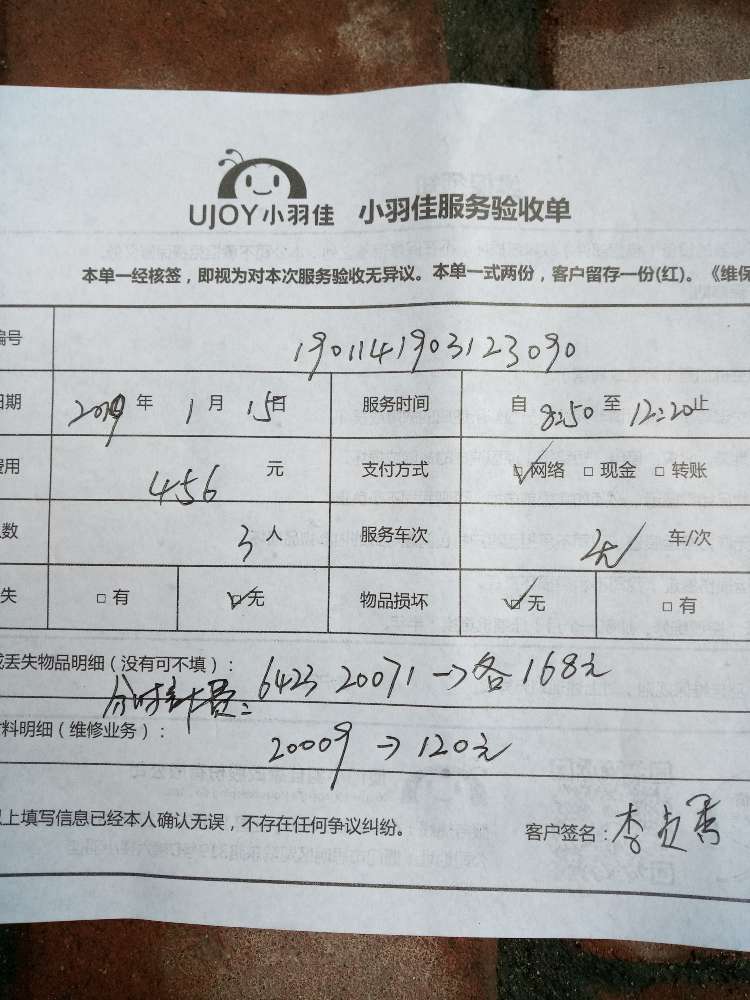 UJOY小羽佳 小羽佳服务验收单
本单一经核签，即视为对本次服务验收无异议。本单一式两份，客户留存一份(红)。《维保
编号 1901141903123090
日期 2019 年 1 月 15日 服务时间 自 8:50 至 12:20止
费用 456 元 支付方式 ☑网络 □现金 □转账
数 3 人 服务车次 无 车/次
失 □有 ☑无 物品损坏 ☑无 □有
或丢失物品明细（没有可不填）： 6423 20071→各168元
料明细（维修业务）： 20009→120元
以上填写信息已经本人确认无误，不存在任何争议纠纷。 客户签名：李